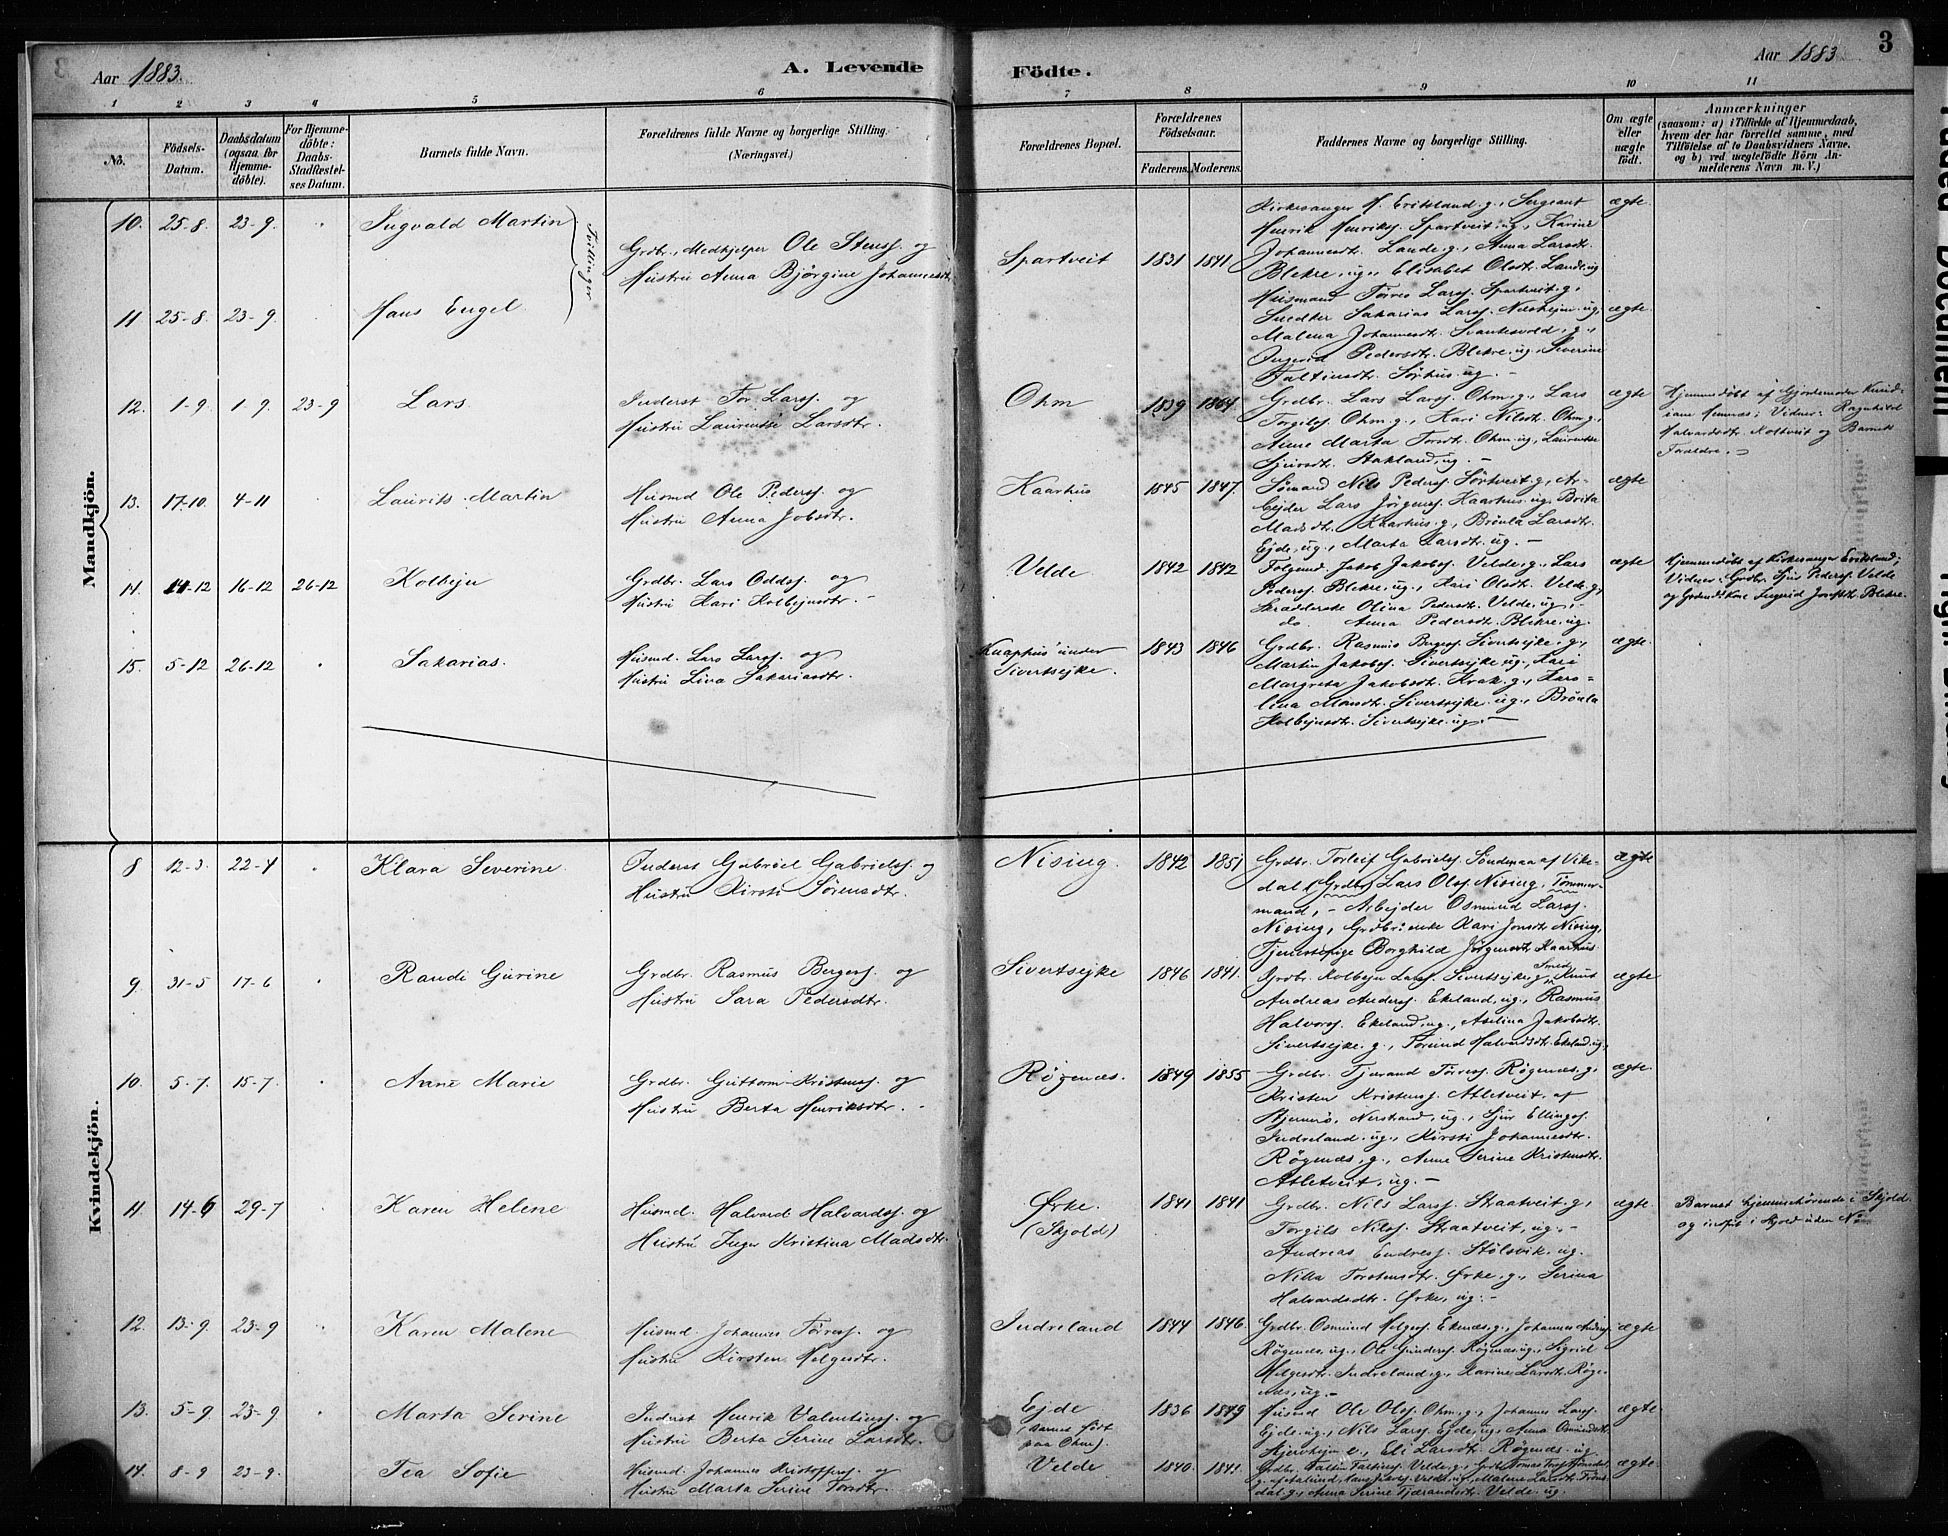 Aar 1883.
A. Levende Födte.
Aar 1883
3
1 2 3 4 5 6 7 8 9 10 11
No.
Födsels-
Datum.
Daabsdatum
(ogsaa for
Hjemme-
döbte).
For Hjemme-
döbte:
Daabs-
Stadfæstel-
ses Datum.
Barnets fulde Navn.
Forældrenes fulde Navne og borgerlige Stilling.
(Næringsvei.)
Forældrenes Bopæl.
Forældrenes
Födselsaar.
Faderens. Moderens.
Faddernes Navne og borgerlige Stilling.
Om ægte
eller
uægte
födt.
Anmærkninger
(saasom: a) i Tilfælde af Hjemmedaab,
hvem der har forrettet samme, med
Tilföielse af to Daabsvidners Navne,
og b) ved uægtefödte Börn An-
melderens Navn m. V.)
Mandkjön.
10. 25-8. 23-9. Ingvald Martin
Tvillinger
Grdbr., Medhjelper Ole Stenss. og
Hustru Anna Björgine Johannesdtr.
Spartveit 1831 1841
Kirkesanger M. Eritsland. g., Sergeant
Henrik Henrikss. Spartveit. ug., Karine
Johannesdtr. Lande. g., Anna Larsdtr.
Blekre, ug., Elisabet Olsdtr. Lande. ug
ægte
11 25-8. 23-9. Hans Engel
Husmand Törres Larss. Spartveit. g.,
Snedker Sakarias Larss. ug,
Malena Johannesdtr. g.,
Ingerid Pedersdtr. Blekre. ug., Severine
Faltinsdtr. Sørhus. ug. -
ægte.
12. 1-9. 1-9. 23-9 Lars
Inderst Tor Larss. og
Hustru Laurentse Larsdtr.
Ohm 1839 1864
Grdbr. Lars Larss. Ohm. g., Lars
Torgilss. Ohm. g., Kari Nilsdtr. Ohm. g.,
Anne Marta Torsdtr. Ohm. ug., Laurentse
Sjursdtr. Stakland, ug. -
ægte
Hjemmedøbt af Gjordemoder
Vidner: Ragnhild
Halvardsdtr. og Barnets
Forældre. -
13. 17-10. 4-11 Laurits Martin
Husmd Ole Pederss. og
Hustru Anna Jobsdtr.
Kaarhus 1845 1847.
Sømand Nils Pederss. Sørtveit. g., Ar-
bejder Lars Jörgenss. Kaarhus. ug. Brita
Madsdtr. Kaarhus. g., Bröula Larsdtr.
Ejde, ug., Marta Larsdtr. ug. -
ægte
14. 14-12 16-12 26-12 Kolbejn
Grdbr. Lars Oddss. og
Hustru Kari Kolbejnsdtr. -
Velde 1842 1842
Følgemd. Jakob Jakobss. Velde, g., Lars
Pederss. Blekre, ug., Kari Olsdtr. Velde. g,
Skrædderske Olina Pedersdtr. Velde, ug, -
do. Anna Pedersdtr. Blekre. ug.
ægte
Hjemmedøbt af Kirkesanger Eritsland;
Vidner: Grdbr. Sjur Pederss. Velde
og Ingrid Blekre.
15. 5-12 26-12 Sakarias.
Husmd. Lars Larss. og
Hustru Lina Sakariasdtr.
Knaphus under
Sivertsejke. 1843 1846
Grdbr. Rasmus Bergess. Sivertsejke. g.,
Martin Jakobss. Sivertsejke ug., Kari
Margreta Jakobsdtr. Krak. g., Karo-
lina Monsdtr. Sivertsejke. ug., Bröula
Kolbejnsdtr. Sivertsejke. ug. -
ægte.
Kvindekjön.
8 12-3. 22-4 Klara Severine.
Inderst Gabriel Gabrielss. og
Hustru Kirsti Sörensdtr.
Nising. 1842 1851
Grdbr. Torleif Gabrielss. Søndenaa af Vike-
dal, Grdbr Lars Olss. Nising, Tømmer-
mand, - Arbejder Osmund Larss.
Nising, Grdbr.enke Kari Jonsdtr. Nising,
Tjenestepige Borghild Jörgensdtr. Kaarhus.
ægte
9. 31-5 17-6 Randi Gurine
Grdbr. Rasmus Bergess. og
Hustru Sara Pedersdtr.
Sivertsejke 1846 1841.
Grdbr. Kolbejn Larss. Sivertsejke, g., Smed Knut
Andreas Anderss. Ekeland, ug., Rasmus
Halvorss. Ekeland, ug., Aselina Jakobsdtr.
Sivertsejke. g., Torund Halvardsdtr. Ekeland. ug.,
ægte
10. 5-7. 15-7. Anne Marie
Grdbr. Guttorm Kristenss. og
Hustru Berta Henriksdtr. -
Røgenæs. 1849 1855
Grdbr. Tjærand Törress. Røgenæs. g.,
Kristen Kristenss. Atletveit, af
Nerstrand, ug., Sjur Ellingss.
Indreland. ug., Kirsti Johannesdtr.
Røgenæs, g., Anne Serine Kristensdtr.
Atletveit, ug. -
ægte.
11. 14-6 29-7 Karen Helene
Husmd. Halvard Halvardss. og
Hustru Inger Kristina Madsdtr.
Ørke.
(Skjold) 1841 1841
Grdbr. Nils Larss. Straatveit. g.,
Torgils Nilss. Straatveit, ug. -
Andreas Endress. Stølsvik. ug.
Nilla Torstensdtr. Ørke. g., Serina
Halvardsdtr. Ørke, ug. -
ægte.
Barnet hjemmehørende i Skjold
og indført i Skjold uden No
12. 13-9. 23-9 Karen Malene
Husmd. Johannes Törress. og
Hustru Kirsten Helgesdtr.
Indreland 1844 1846.
Grdbr. Osmund Helgess. Ekenæs, g., Johannes Anderss.
Røgenæs, ug., Ole Gunderss. Røgenæs. ug., Sigrid
Helgesdtr. Indreland. g., Karine Larsdtr. Røge-
næs, ug. -
ægte
13. 5-9 23-9 Marta Serine
Inderst Henrik Valentinss. og
Hustru Berta Serine Larsdtr.
Ejde
(Barnet født
paa Ohm). 1836 1849
Husmd Ole Olss. Ohm. g., Johannes Larss.
Ejde. ug., Nils Larss. Ejde, ug, Anna Osmundsdtr.
Skjerhejm e., Eli Larsdtr. Røgenæs. ug.
ægte
14. 8-9 23-9. Tea Sofie
Husmd. Johannes Kristofferss. og
Hustru Marta Serine Torsdtr.
Velde 1840. 1841.
Grdbr. Faltin Faltinss. Velde, g., Grdbr Tomas Torss.
g. Hans Velde. ug., Malene Larsdtr.
g., Anna Serine Tjærandsdtr. Velde. ug.
ægte.